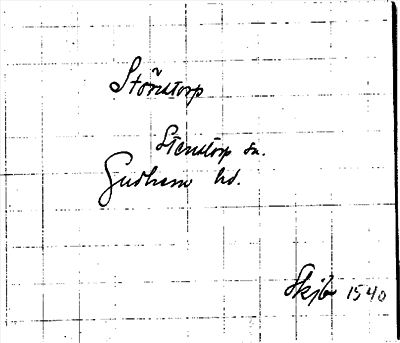 Störstorp
Stenstorp sn.
Gudhem hd.
Skjbr 1540